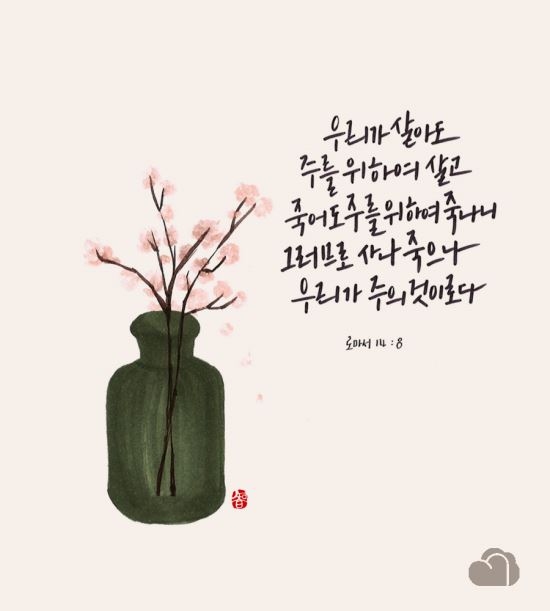 우리가 살아도
주를 위하여 살고
죽어도 주를 위하여 죽나니
그러므로 사나 죽으나
우리가 주의 것이로다
로마서 14 : 8
智